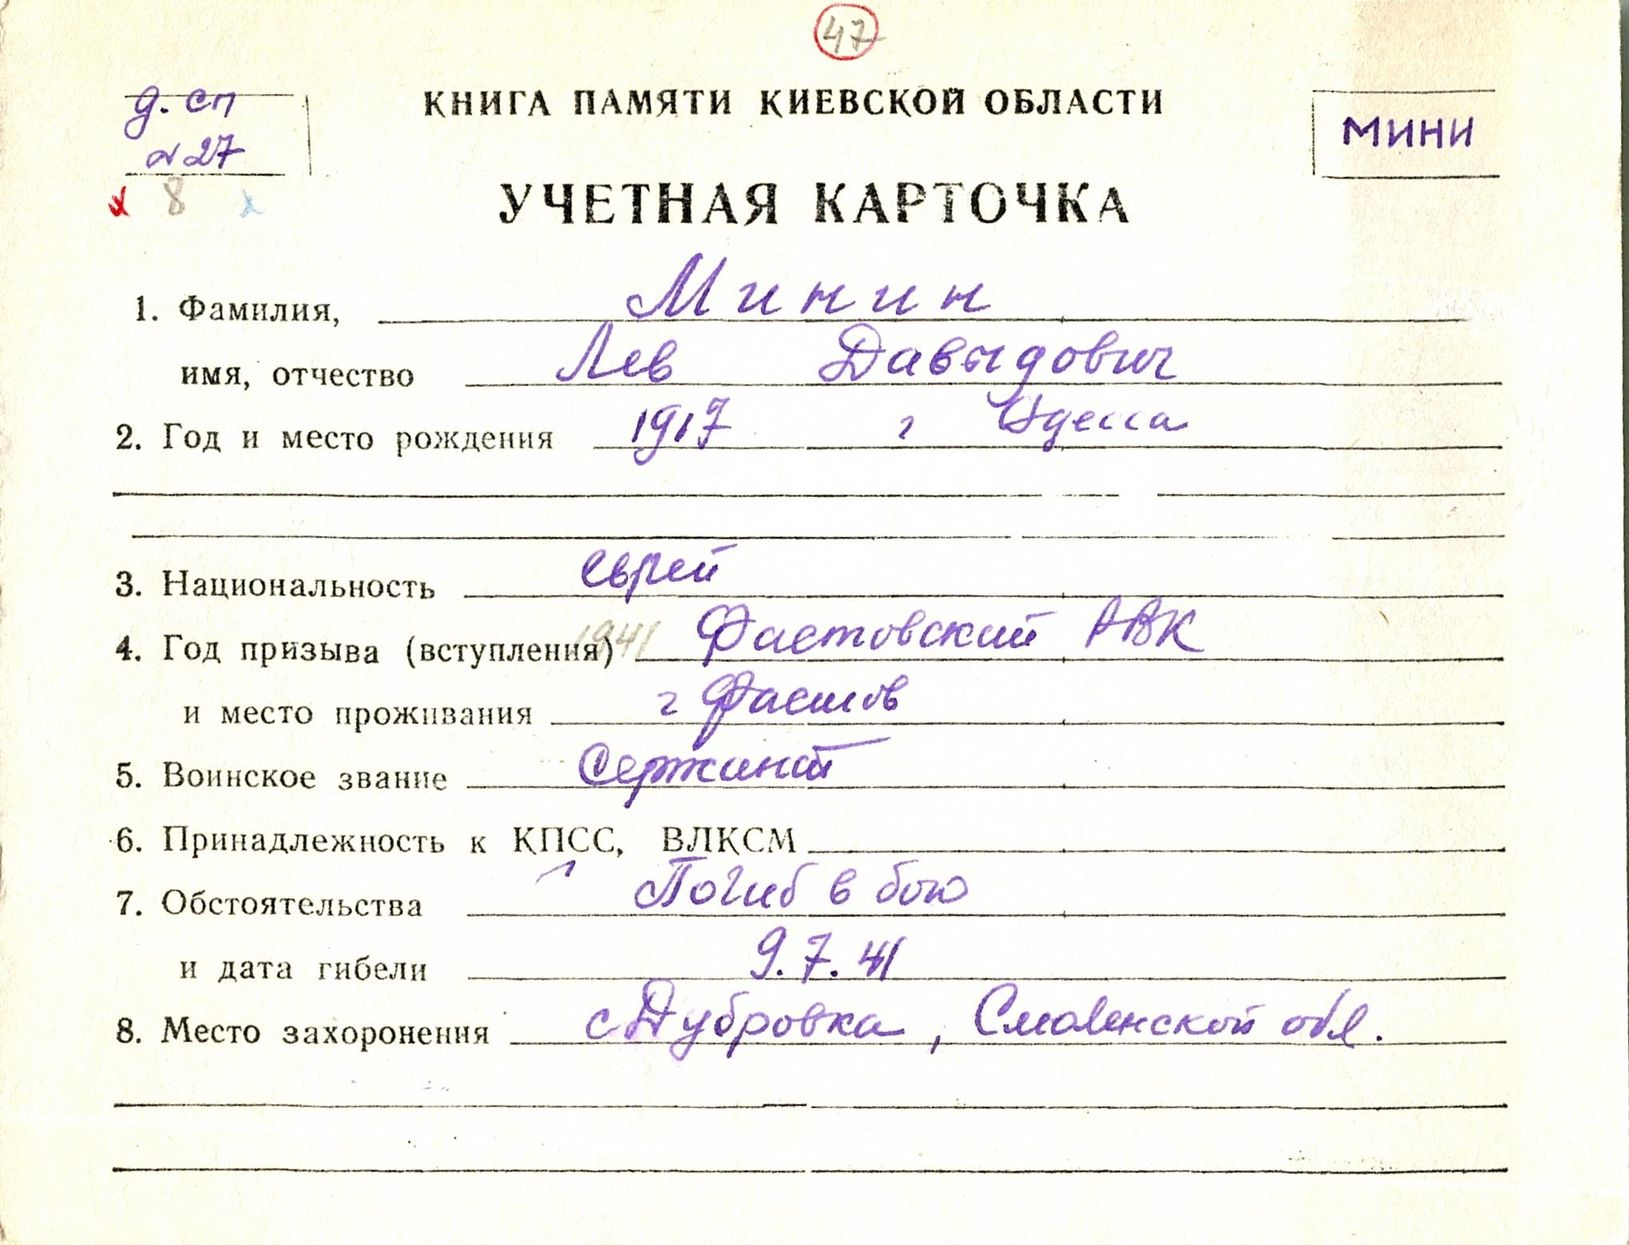 47
д. сп
КНИГА ПАМЯТИ КИЕВСКОЙ ОБЛАСТИ
МИНИ
№27
8
УЧЕТНАЯ КАРТОЧКА
1. Фамилия, Минин
имя, отчество Лев Давыдович
2. Год и место рождения 1917 г Одесса
3. Национальность еврей
4. Год призыва (вступления) 1941 Фастовский РВК
и место проживания г Фастов
5. Воинское звание Сержант
6. Принадлежность к КПСС, ВЛКСМ
7. Обстоятельства Погиб в бою
и дата гибели 9.7.41
8. Место захоронения с Дубровка, Смоленской обл.